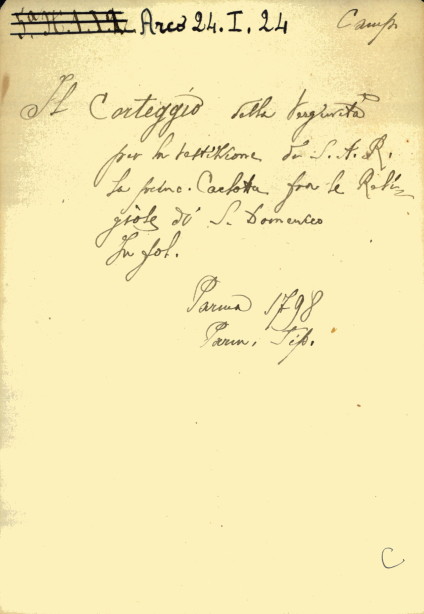 Arco 24. I. 24
Camp
Il Corteggio della Verginità
per la vestizione di S. A. R.
la princ. Carlotta fra le Reli-
giose di S. Domenico
In fol.
Parma 1798
Parm. Tip.
C